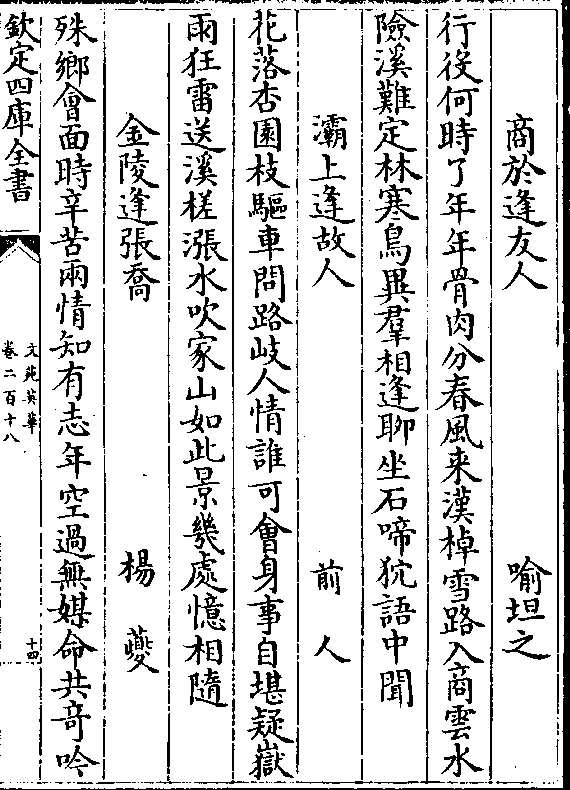 商於逢友人　喻坦之
行役何時了年年骨肉分春風来漢棹雪路入商雲水
險溪難定林寒鳥異羣相逢聊坐石啼狖語中聞
灞上逢故人　前人
花落杏園枝驅車問路岐人情誰可會身事自堪疑嶽
雨狂雷送溪槎漲水吹家山如此景幾處憶相隨
金陵逢張喬　楊夔
殊鄉會面時辛苦兩情知有志年空過無媒命共竒吟
欽定四庫全書
文苑英華
卷二百十八
十四